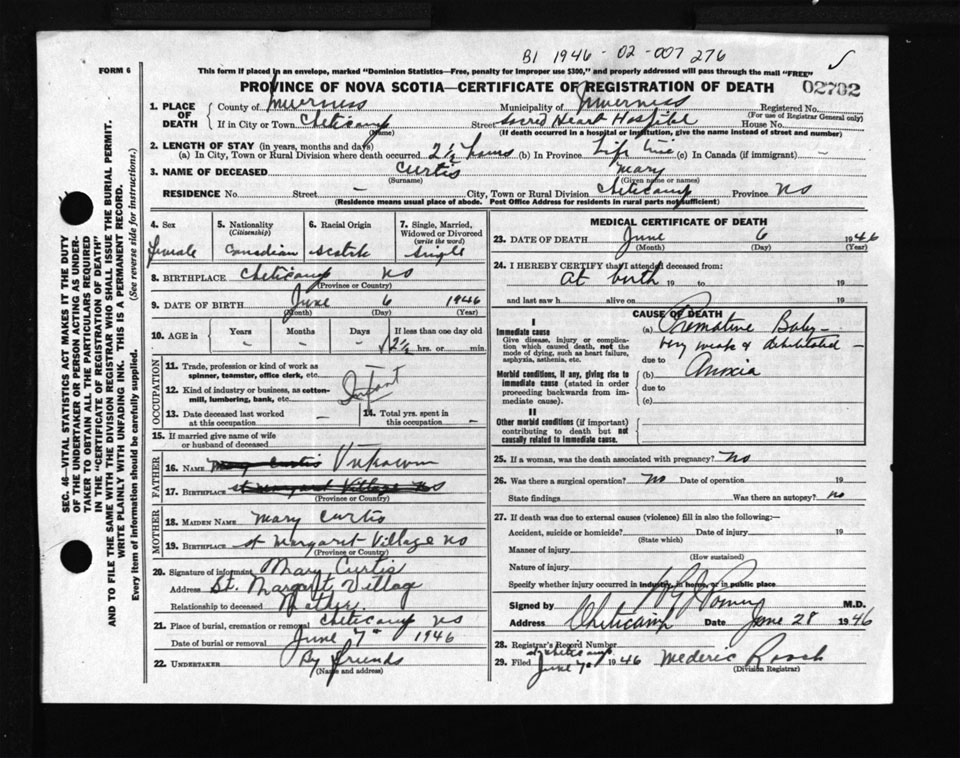 B1 1946-02-007276
FORM 6
This form if placed in an envelope, marked "Dominion Statistics—Free, penalty for improper use $300," and properly addressed will pass through the mail "FREE"
PROVINCE OF NOVA SCOTIA—CERTIFICATE OF REGISTRATION OF DEATH
02702
1. PLACE OF DEATH
County of Inverness Municipality of Inverness Registered No.
(For use of Registrar General only)
If in City or Town Cheticamp Street Sacred Heart Hospital House No.
(Name) (If death occurred in a hospital or institution, give the name instead of street and number)
2. LENGTH OF STAY (in years, months and days)
(a) In City, Town or Rural Division where death occurred 2½ hours (b) In Province Life time (c) In Canada (if immigrant) -
3. NAME OF DECEASED Curtis Mary
(Surname) (Given name or names)
RESIDENCE No. Street - City, Town or Rural Division Cheticamp Province NS
(Residence means usual place of abode. Post Office Address for residents in rural parts not sufficient)
4. Sex
Female
5. Nationality
(Citizenship)
Canadian
6. Racial Origin
Scotch
7. Single, Married,
Widowed or Divorced
(write the word)
Single
8. BIRTHPLACE Cheticamp NS
(Province or Country)
9. DATE OF BIRTH June 6 1946
(Month) (Day) (Year)
10. AGE in
Years
-
Months
-
Days
-
If less than one day old
2½ hrs. or min.
OCCUPATION
11. Trade, profession or kind of work as
spinner, teamster, office clerk, etc.
12. Kind of industry or business, as cotton-
mill, lumbering, bank, etc.
Infant
13. Date deceased last worked
at this occupation -
14. Total yrs. spent in
this occupation -
15. If married give name of wife
or husband of deceased
FATHER
16. NAME Mary Curtis Unknown
17. BIRTHPLACE St Margaret Village NS
(Province or Country)
MOTHER
18. MAIDEN NAME Mary Curtis
19. BIRTHPLACE St Margaret Village NS
(Province or Country)
20. Signature of informant Mary Curtis
Address St. Margaret Village
Relationship to deceased Mother.
21. Place of burial, cremation or removal Cheticamp NS
Date of burial or removal June 7th 1946
22. UNDERTAKER By friends
(Name and address)
MEDICAL CERTIFICATE OF DEATH
23. DATE OF DEATH June 6 1946
(Month) (Day) (Year)
24. I HEREBY CERTIFY that I attended deceased from:
At birth 19 to 19
and last saw h alive on 19
CAUSE OF DEATH
I
Immediate cause
Give disease, injury or complica-
tion which caused death, not the
mode of dying, such as heart failure,
asphyxia, asthenia, etc.
(a) Premature Baby -
very weak & debilitated -
due to
Morbid conditions, if any, giving rise to
immediate cause (stated in order
proceeding backwards from im-
mediate cause).
(b) Anoxia
due to
(c)
II
Other morbid conditions (if important)
contributing to death but not
causally related to immediate cause.
25. If a woman, was the death associated with pregnancy? No
26. Was there a surgical operation? No Date of operation 19
State findings Was there an autopsy? no
27. If death was due to external causes (violence) fill in also the following:—
Accident, suicide or homicide? Date of injury 19
(State which)
Manner of injury
(How sustained)
Nature of injury
Specify whether injury occurred in industry, in home, or in public place
Signed by M.D.
Address Cheticamp Date June 28 1946
28. Registrar's Record Number
29. Filed June 7th 1946 Mederic Roach
(Division Registrar)
SEC. 46—VITAL STATISTICS ACT MAKES IT THE DUTY
OF THE UNDERTAKER OR PERSON ACTING AS UNDER-
TAKER TO OBTAIN ALL THE PARTICULARS REQUIRED
IN THE "CERTIFICATE OF REGISTRATION OF DEATH"
AND TO FILE THE SAME WITH THE DIVISION REGISTRAR WHO SHALL ISSUE THE BURIAL PERMIT.
WRITE PLAINLY WITH UNFADING INK. THIS IS A PERMANENT RECORD.
Every item of information should be carefully supplied. (See reverse side for instructions.)